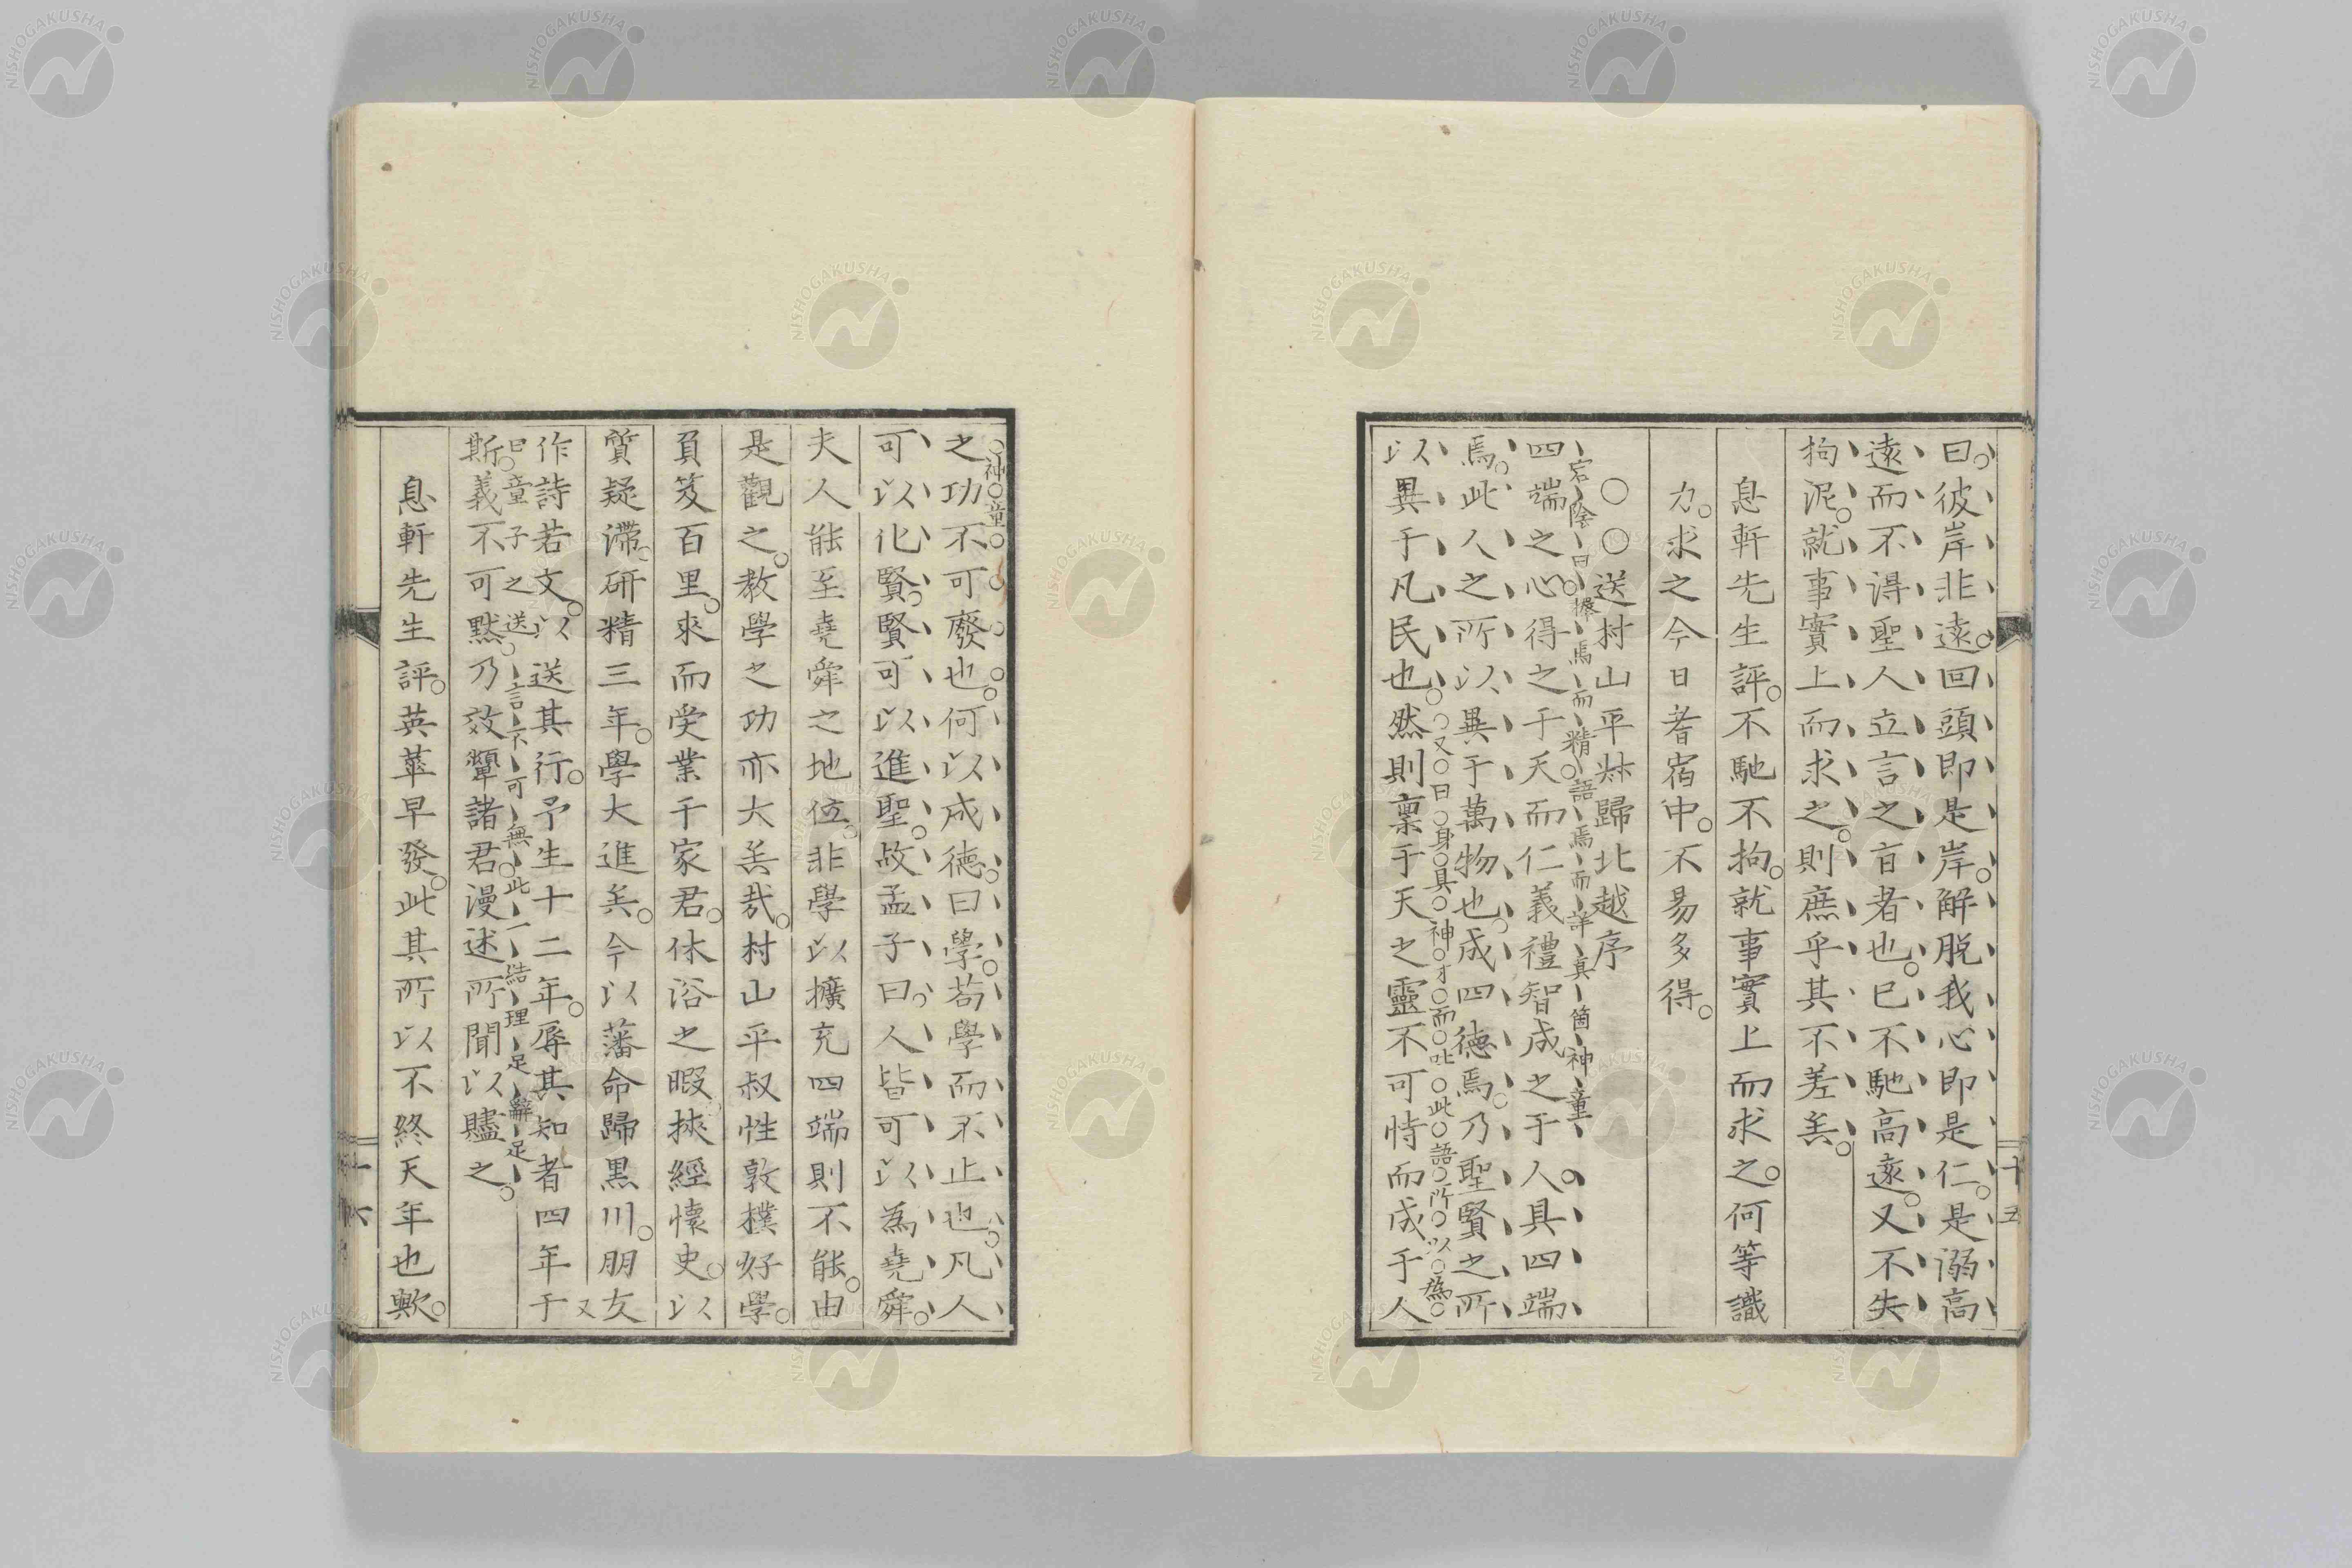 曰。彼岸非遠。回頭即是岸。解脫我心即是仁。是溺高
遠而不得聖人立言之旨者也。已不馳高遠。又不失
拘泥。就事實上而求之。則庶乎其不差矣。
息軒先生評。不馳不拘。就事實上而求之。何等識
力。求之今日耆宿中。不易多得。
○○送村山平叔歸北越序
宕陰曰。擇焉而精。語焉而詳。真箇神童
四端之心。得之于天。而仁義禮智成之于人。具四端
焉。此人之所以異于萬物也。成四德焉。乃聖賢之所
又曰身具神才而吐此語所以為
以異于凡民也。然則稟于天之靈不可恃。而成于人
十五
神童
之功不可廢也。何以成德。曰學。苟學而不止也。凡人
可以化賢。賢可以進聖。故孟子曰。人皆可以為堯舜。
夫人能至堯舜之地位。非學以擴充四端則不能。由
是觀之。教學之功亦大矣哉。村山平叔性敦樸好學。
負笈百里。來而受業于家君。休浴之暇。挾經懷史。以
質疑滯。研精三年。學大進矣。今以藩命歸黑川。朋友
又
作詩若文。以送其行。予生十二年。辱其知者四年于
曰。童子之送。言不可無此一結理足辭足。
斯。義不可默。乃效顰諸君。漫述所聞以贐之。
息軒先生評。英華早發。此其所以不終天年也歟。
十六
NISHOGAKUSHA